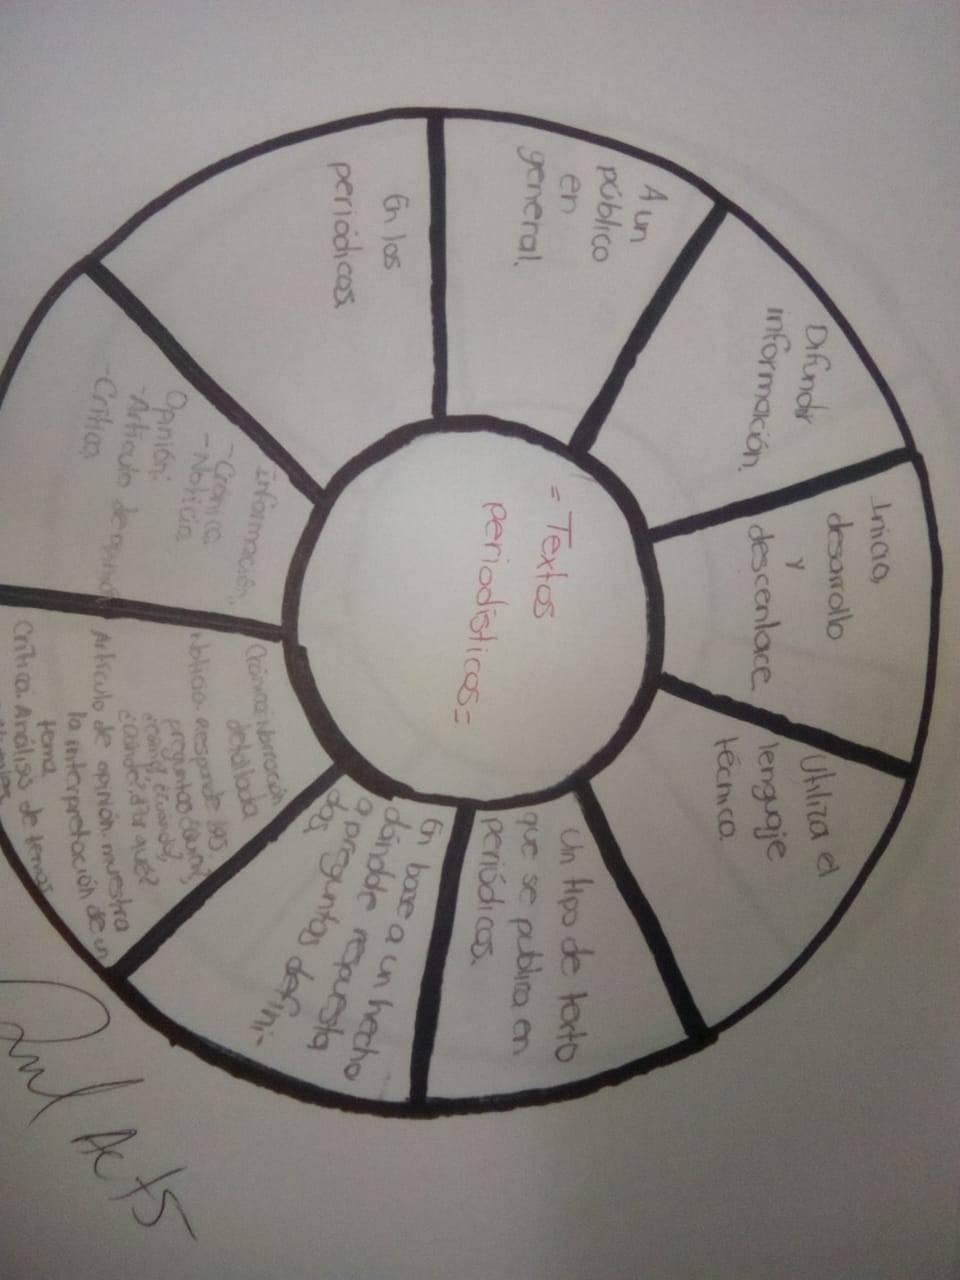 = Textos
periodísticos =
A un
público
en
general.
Difundir
información.
Inicio,
desarrollo
y
descenlace.
Utiliza el
lenguaje
técnico.
Un tipo de texto
que se publica en
periódicos.
En base a un hecho
dándole respuesta
a preguntas defini-
das
Crónica: Narración
detallada
Noticia: Responde las
preguntas
¿cuándo?,
¿dónde?, ¿Por qué?
Artículo de opinión: muestra
la interpretación de un
tema
Crítica: Análisis de temas
información.
- Crónica
- Noticia
Opinión:
- Artículo de opinión
- Crítica
En los
periódicos.
Act5